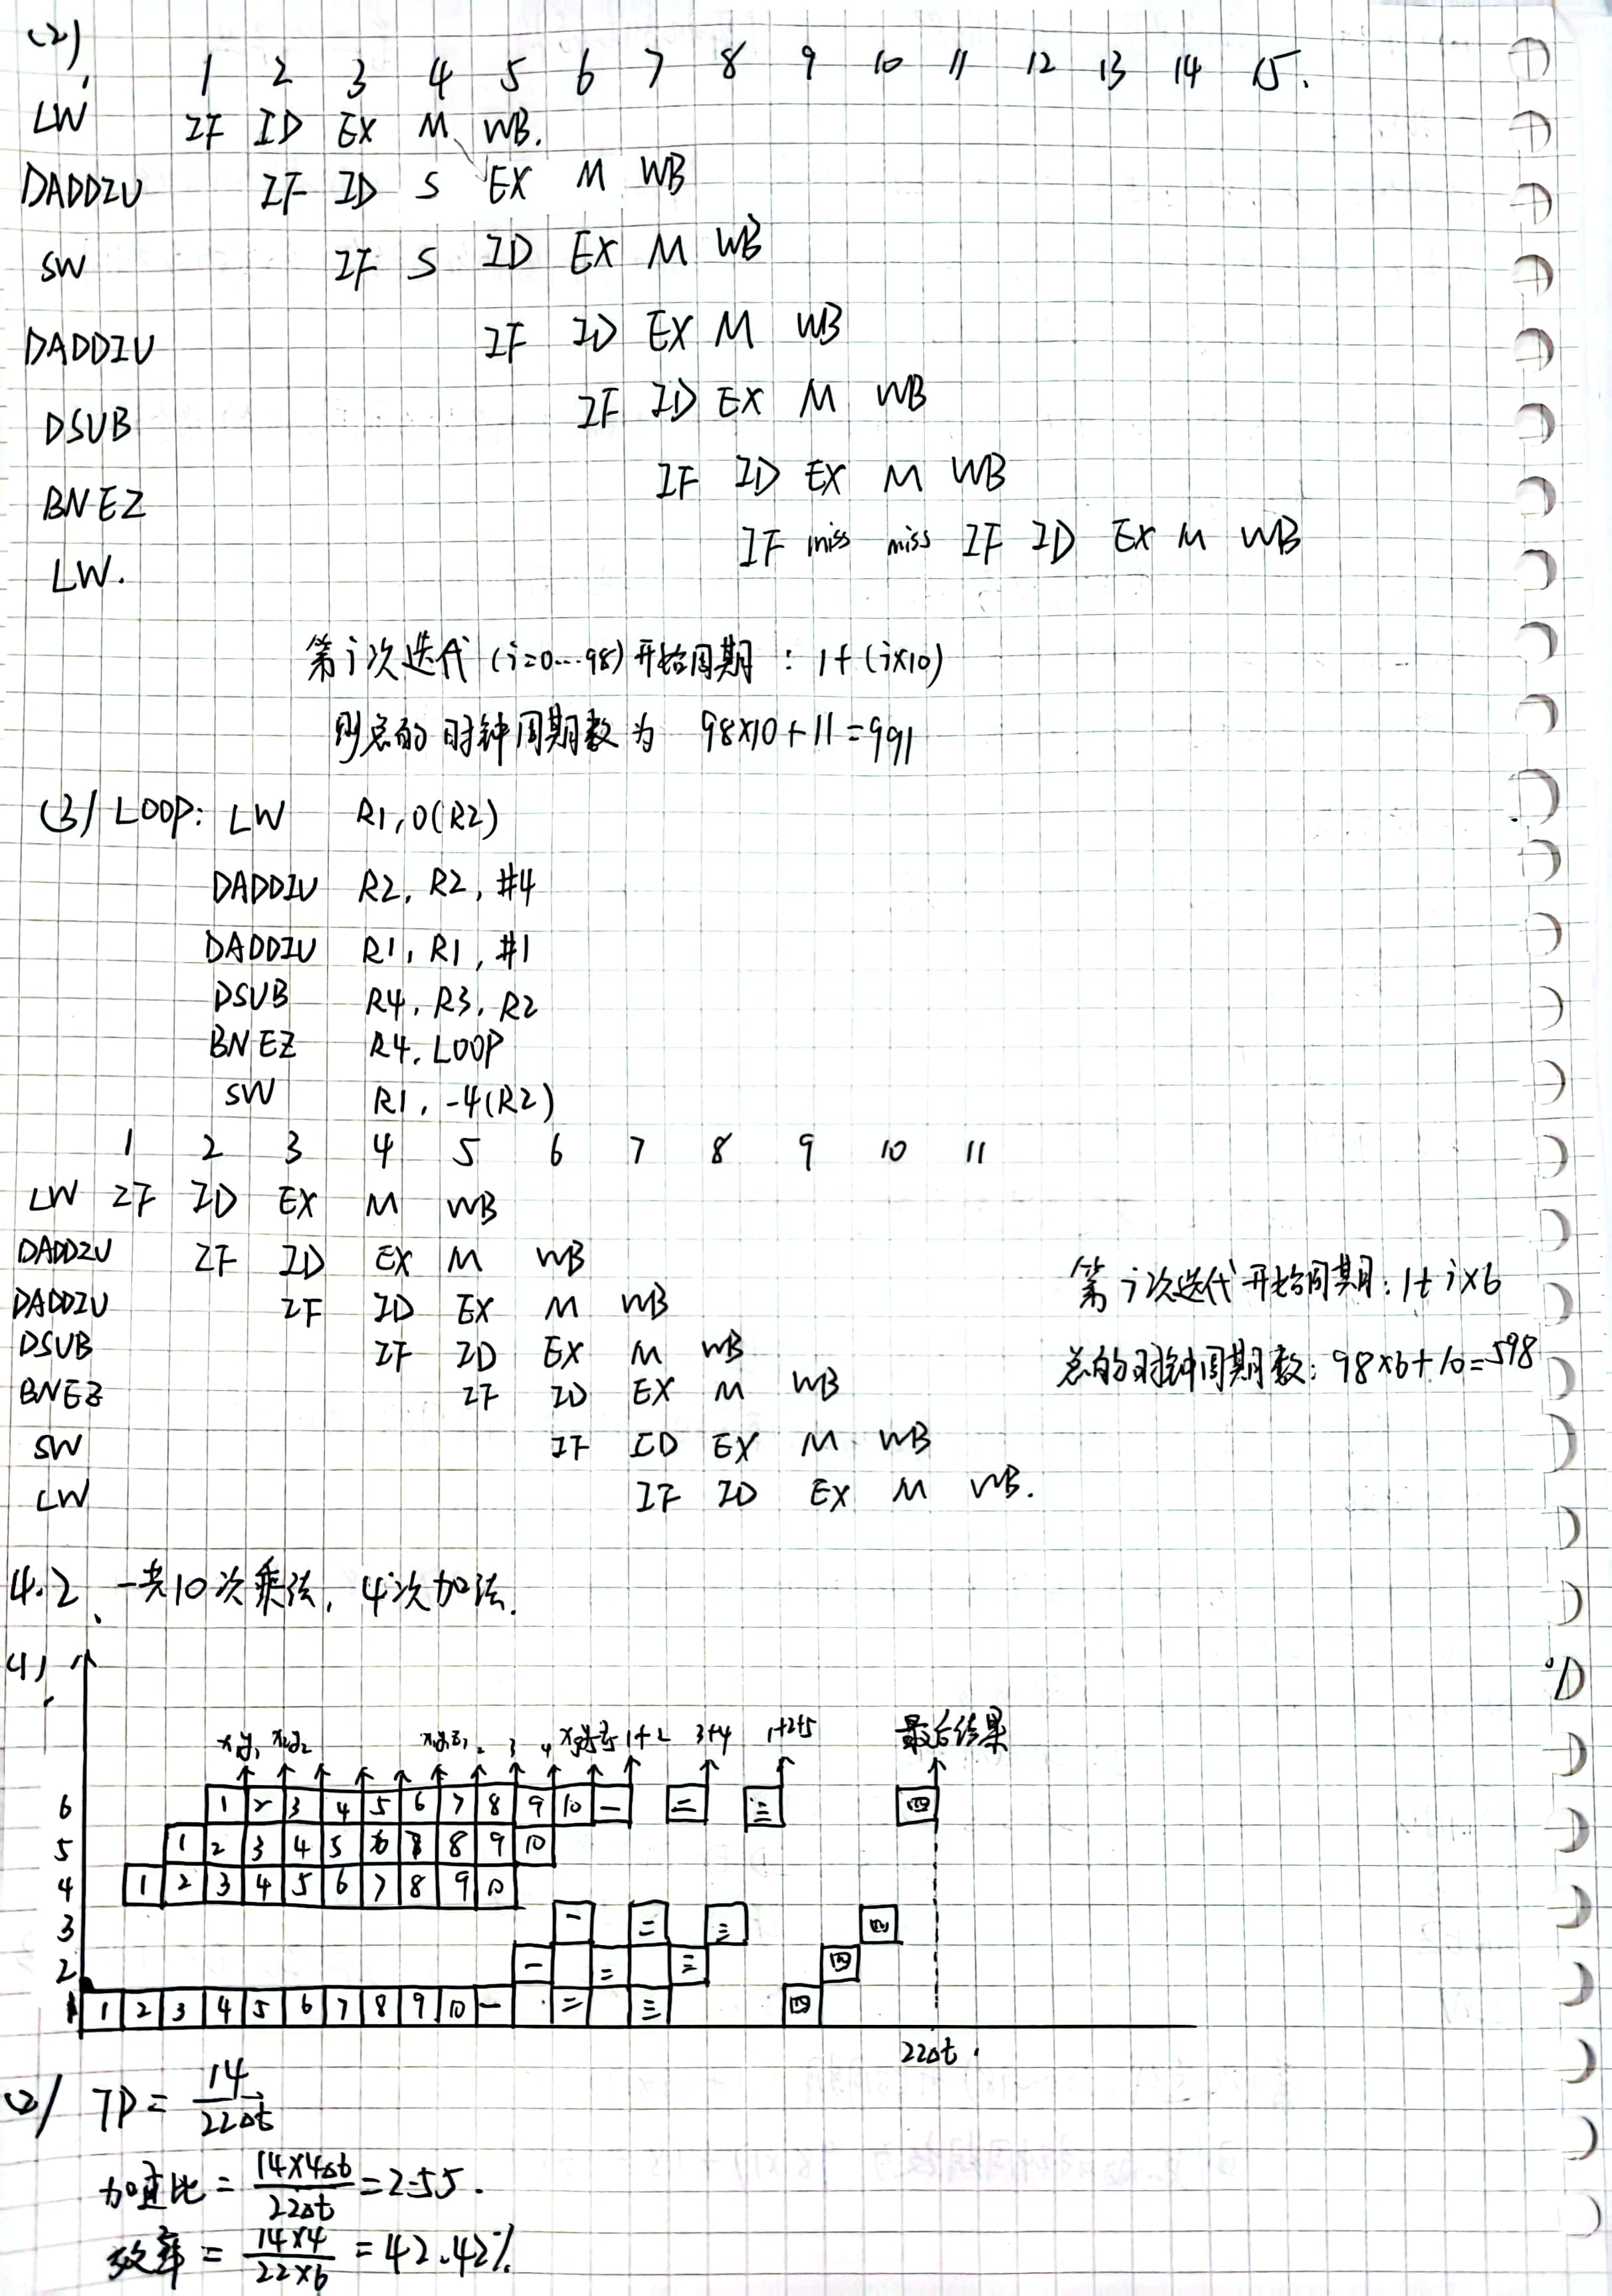 (2)
1 2 3 4 5 6 7 8 9 10 11 12 13 14 15.
LW IF ID EX M WB.
DADDIU IF ID S EX M WB
SW IF S ID EX M WB
DADDIU IF ID EX M WB
DSUB IF ID EX M WB
BNEZ IF ID EX M WB
LW. IF miss miss IF ID EX M WB
第i次迭代 (i=0...98) 开始周期 : 1+(i×10)
则总的时钟周期数为 98×10+11=991
(3) LOOP: LW R1,0(R2)
DADDIU R2, R2, #4
DADDIU R1, R1, #1
DSUB R4, R3, R2
BNEZ R4, LOOP
SW R1, -4(R2)
1 2 3 4 5 6 7 8 9 10 11
LW IF ID EX M WB
DADDIU IF ID EX M WB
DADDIU IF ID EX M WB
DSUB IF ID EX M WB
BNEZ IF ID EX M WB
SW IF ID EX M WB
LW IF ID EX M WB.
第i次迭代开始周期: 1+i×6
总的时钟周期数: 98×6+10=598
4.2、一共10次乘法, 4次加法.
(1)
x1y1 x2y2 x1y1z1 2 3 4 x5y5z5 1+2 3+4 1+2+5 最后结果
6 1 2 3 4 5 6 7 8 9 10 一 二 三 四
5 1 2 3 4 5 6 7 8 9 10
4 1 2 3 4 5 6 7 8 9 10
3 一 二 三 四
2 一 二 三 四
1 1 2 3 4 5 6 7 8 9 10 一 二 三 四
22Δt.
(2) TP = 14/22Δt
加速比 = 14×4Δt/22Δt = 2.55.
效率 = 14×4/22×6 = 42.42%